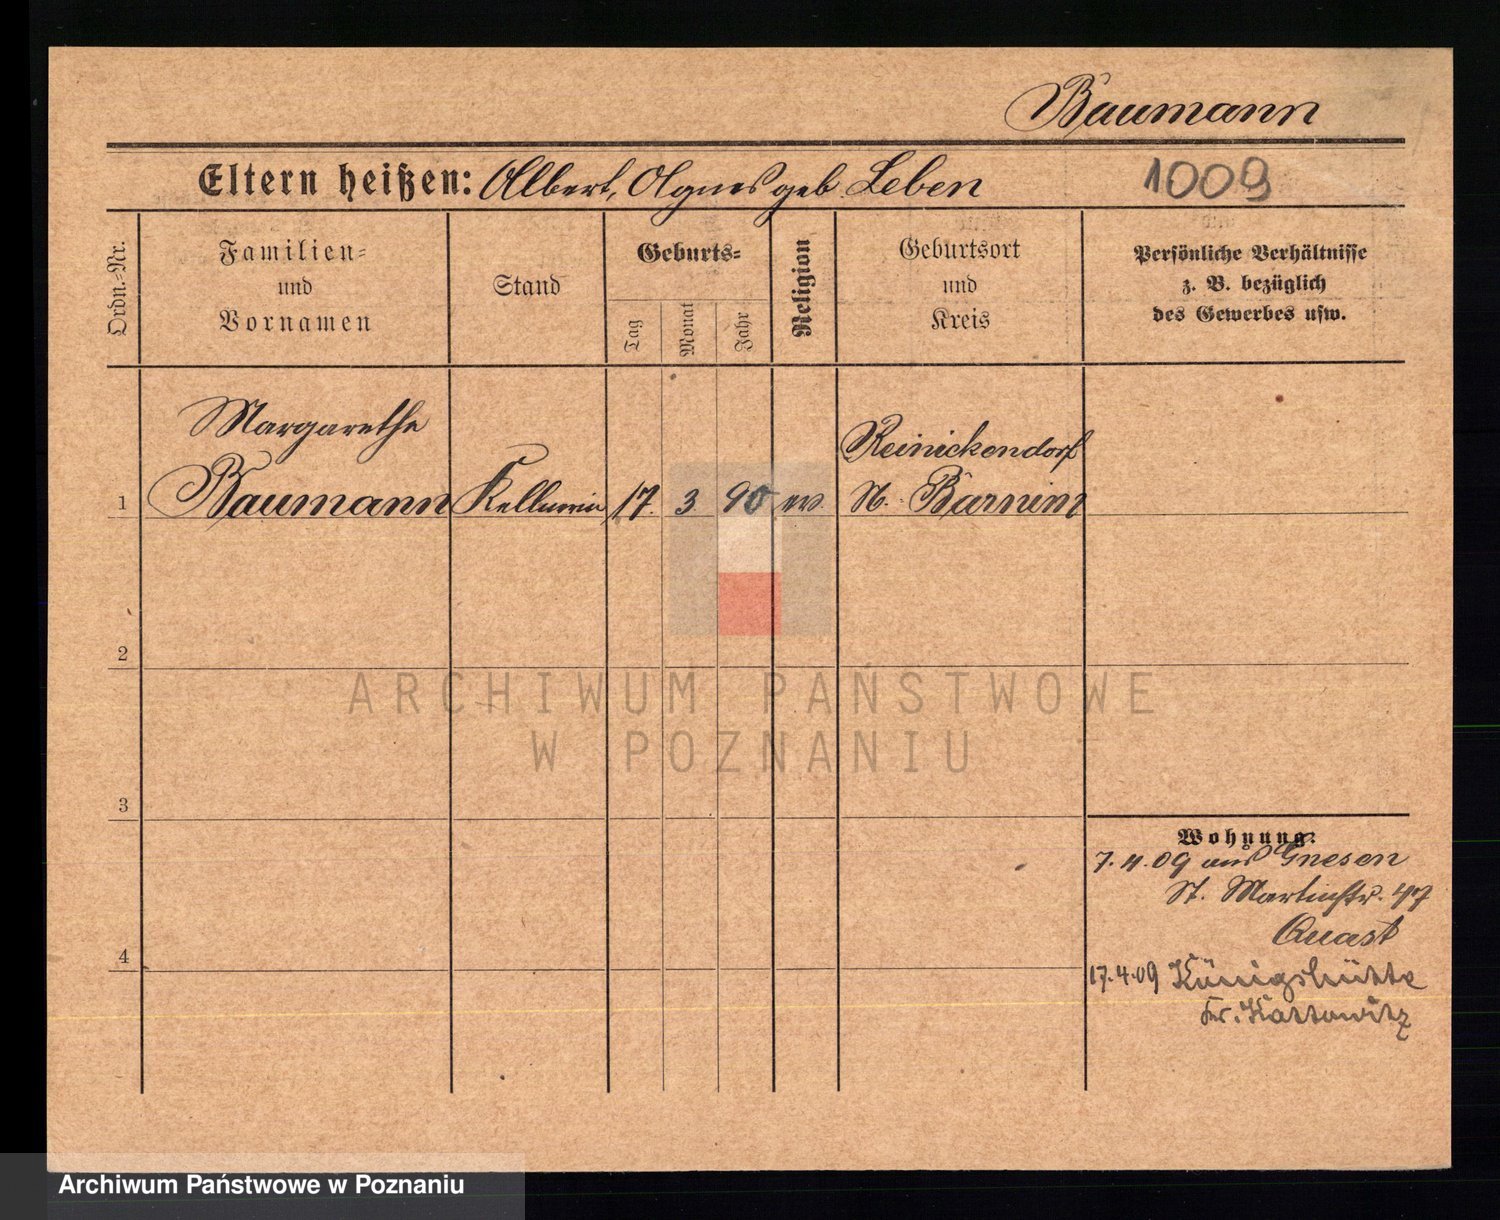 Baumann
Eltern heißen: Albert, Agnes geb. Leben
1009
Ordn.-Nr.
Familien-
und
Vornamen
Stand
Geburts-
Tag
Monat
Jahr
Religion
Geburtsort
und
Kreis
Persönliche Verhältnisse
z. B. bezüglich
des Gewerbes usw.
Margarethe
Reinickendorf
1 Baumann Kellnerin 17. 3 90 ev. N. Barnim
2
ARCHIWUM PAŃSTWOWE
W POZNANIU
3
Wohnung:
7.4.09 aus Gnesen
St. Martinstr. 47
Quast
4
17.4.09 Königshütte
Kr. Kattowitz
Archiwum Państwowe w Poznaniu